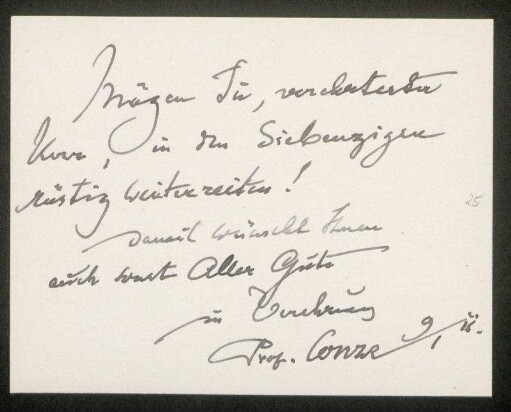 Mögen Sie, verehrtester
Herr, in den Siebenzigen
rüstig weiterreiten!
Damit wünscht Ihnen
auch sonst Alles Gute
in Verehrung
Prof. Conze
25